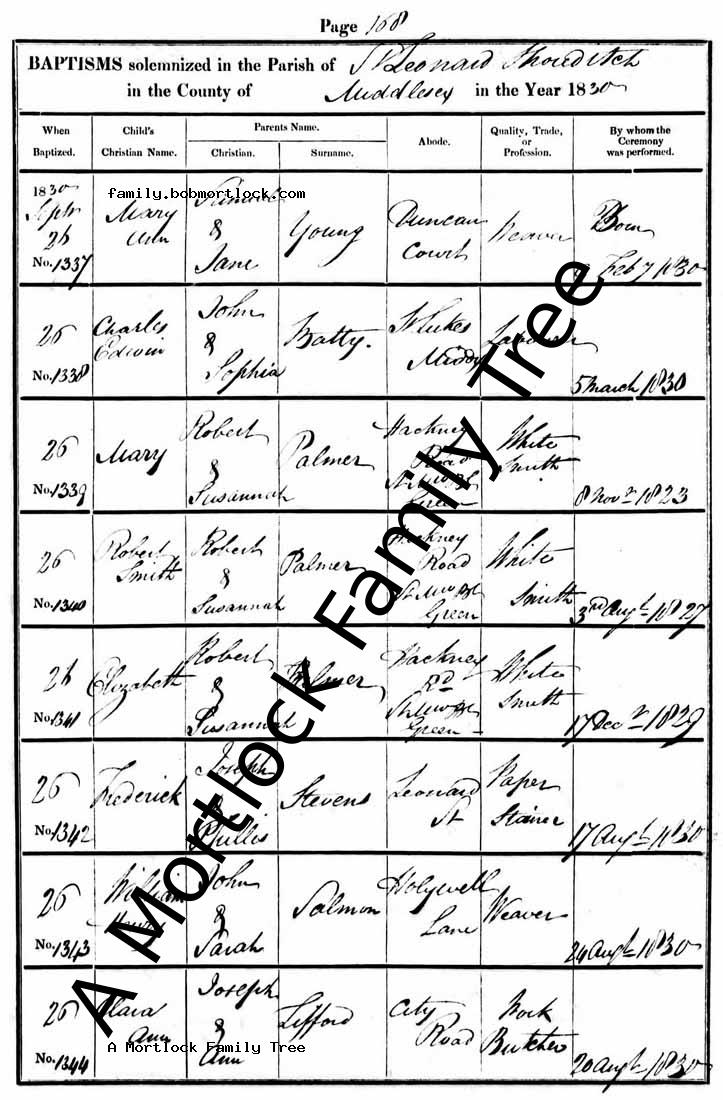 Page 168
BAPTISMS solemnized in the Parish of St Leonard Shoreditch
in the County of Middlesex in the Year 1830
When Baptized.
Child's Christian Name.
Parents Name.
Christian.
Surname.
Abode.
Quality, Trade, or Profession.
By whom the Ceremony was performed.
family.bobmortlock.com
1830
Septr
26
No. 1337
Mary
Ann
&
Jane
Young
Duncan
Court
Weaver
Born
Feb 7 1830
26
No. 1338
Charles
Edwin
John
&
Sophia
Batty.
St Lukes
Middx
Labourer
5 March 1830
26
No. 1339
Mary
Robert
&
Susannah
Palmer
Hackney
Road
Green
White
Smith
8 Novr 1823
26
No. 1340
Robert
Smith
Robert
&
Susannah
Palmer
Hackney
Road
Green
White
Smith
3rd Augt 1827
26
No. 1341
Elizabeth
Robert
&
Susannah
Palmer
Hackney
Rd
Green
White
Smith
17 Decr 1829
26
No. 1342
Frederick
Joseph
&
Phillis
Stevens
Leonard
St
Paper
Stainer
17 Augt 1830
26
No. 1343
William
Henry
John
&
Sarah
Salmon
Holywell
Lane
Weaver
24 Augt 1830
26
No. 1344
Clara
Ann
Joseph
&
Ann
Lifford
City
Road
Pork
Butcher
20 Augt 1830
A Mortlock Family Tree
A Mortlock Family Tree